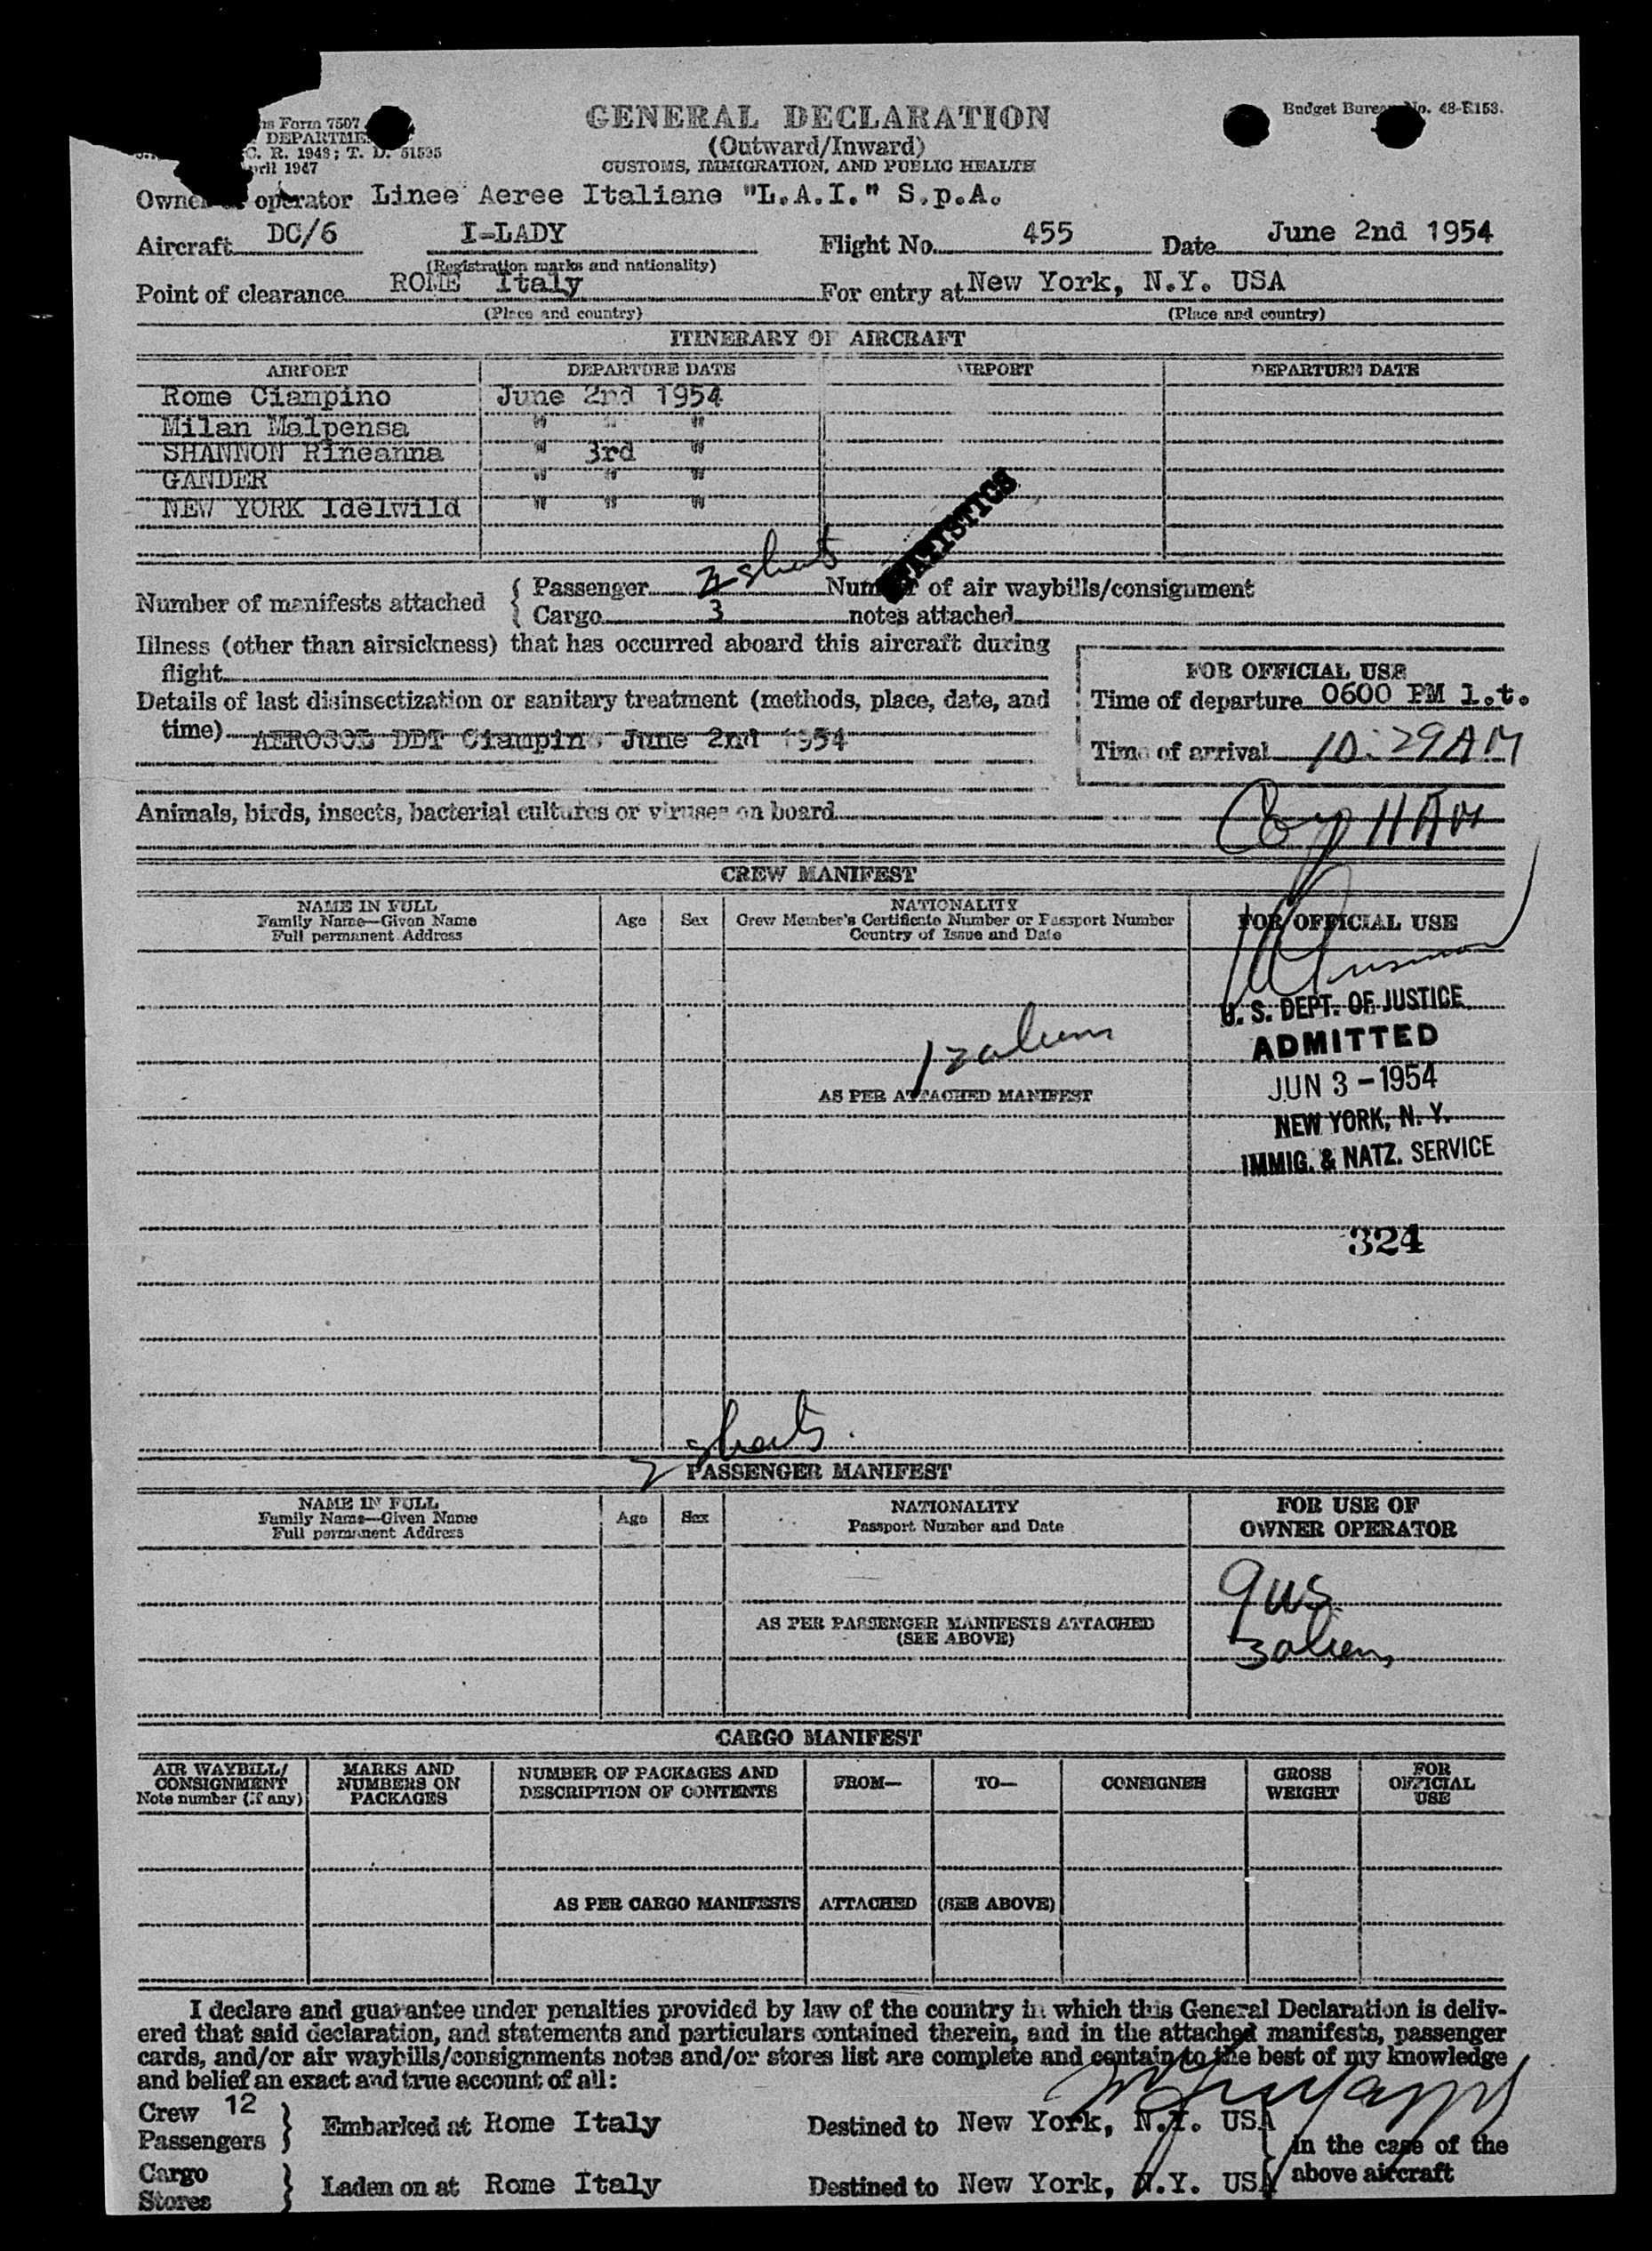 GENERAL DECLARATION
(Outward/Inward)
CUSTOMS, IMMIGRATION, AND PUBLIC HEALTH
Form 7507
DEPARTME
C. R. 1948; T. D. 51595
pril 1947
Budget Bureau No. 48-R153.
operator Linee Aeree Italiane "L.A.I." S.p.A.
Aircraft DC/6 I-LADY Flight No. 455 Date June 2nd 1954
(Registration marks and nationality)
Point of clearance ROME Italy For entry at New York, N.Y. USA
(Place and country) (Place and country)
ITINERARY OF AIRCRAFT
AIRPORT DEPARTURE DATE AIRPORT DEPARTURE DATE
Rome Ciampino June 2nd 1954
Milan Malpensa " " "
SHANNON Rineanna " 3rd "
GANDER " " "
NEW YORK Idelwild " " "
STATISTICS
Number of manifests attached { Passenger 2 sheets Number of air waybills/consignment
Cargo 3 notes attached
Illness (other than airsickness) that has occurred aboard this aircraft during
flight
Details of last disinsectization or sanitary treatment (methods, place, date, and
time) AEROSOL DDT Ciampino June 2nd 1954
FOR OFFICIAL USE
Time of departure 0600 PM l.t.
Time of arrival 10:29 AM
Animals, birds, insects, bacterial cultures or viruses on board
11 AM
CREW MANIFEST
NAME IN FULL
Family Name—Given Name
Full permanent Address
Age
Sex
NATIONALITY
Crew Member's Certificate Number or Passport Number
Country of Issue and Date
FOR OFFICIAL USE
U. S. DEPT. OF JUSTICE
ADMITTED
JUN 3 - 1954
NEW YORK, N. Y.
IMMIG. & NATZ. SERVICE
AS PER ATTACHED MANIFEST
324
2 sheets
PASSENGER MANIFEST
NAME IN FULL
Family Name—Given Name
Full permanent Address
Age
Sex
NATIONALITY
Passport Number and Date
FOR USE OF
OWNER OPERATOR
9 us
3 aliens
AS PER PASSENGER MANIFESTS ATTACHED
(SEE ABOVE)
CARGO MANIFEST
AIR WAYBILL/
CONSIGNMENT
Note number (if any)
MARKS AND
NUMBERS ON
PACKAGES
NUMBER OF PACKAGES AND
DESCRIPTION OF CONTENTS
FROM—
TO—
CONSIGNEE
GROSS
WEIGHT
FOR
OFFICIAL
USE
AS PER CARGO MANIFESTS ATTACHED (SEE ABOVE)
I declare and guarantee under penalties provided by law of the country in which this General Declaration is deliv-
ered that said declaration, and statements and particulars contained therein, and in the attached manifests, passenger
cards, and/or air waybills/consignments notes and/or stores list are complete and contain to the best of my knowledge
and belief an exact and true account of all:
Crew 12
Passengers } Embarked at Rome Italy Destined to New York, N.Y. USA
Cargo
Stores } Laden on at Rome Italy Destined to New York, N.Y. USA
in the case of the
above aircraft